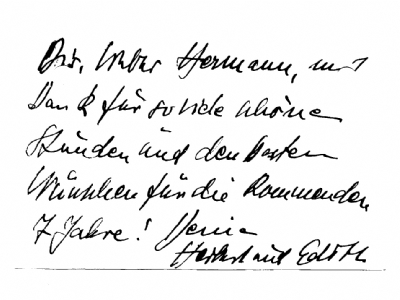 Dir, lieber Hermann, mit
Dank für so viele schöne
Stunden und den besten
Wünschen für die kommenden
7 Jahre! Deine
Herbert und Edith